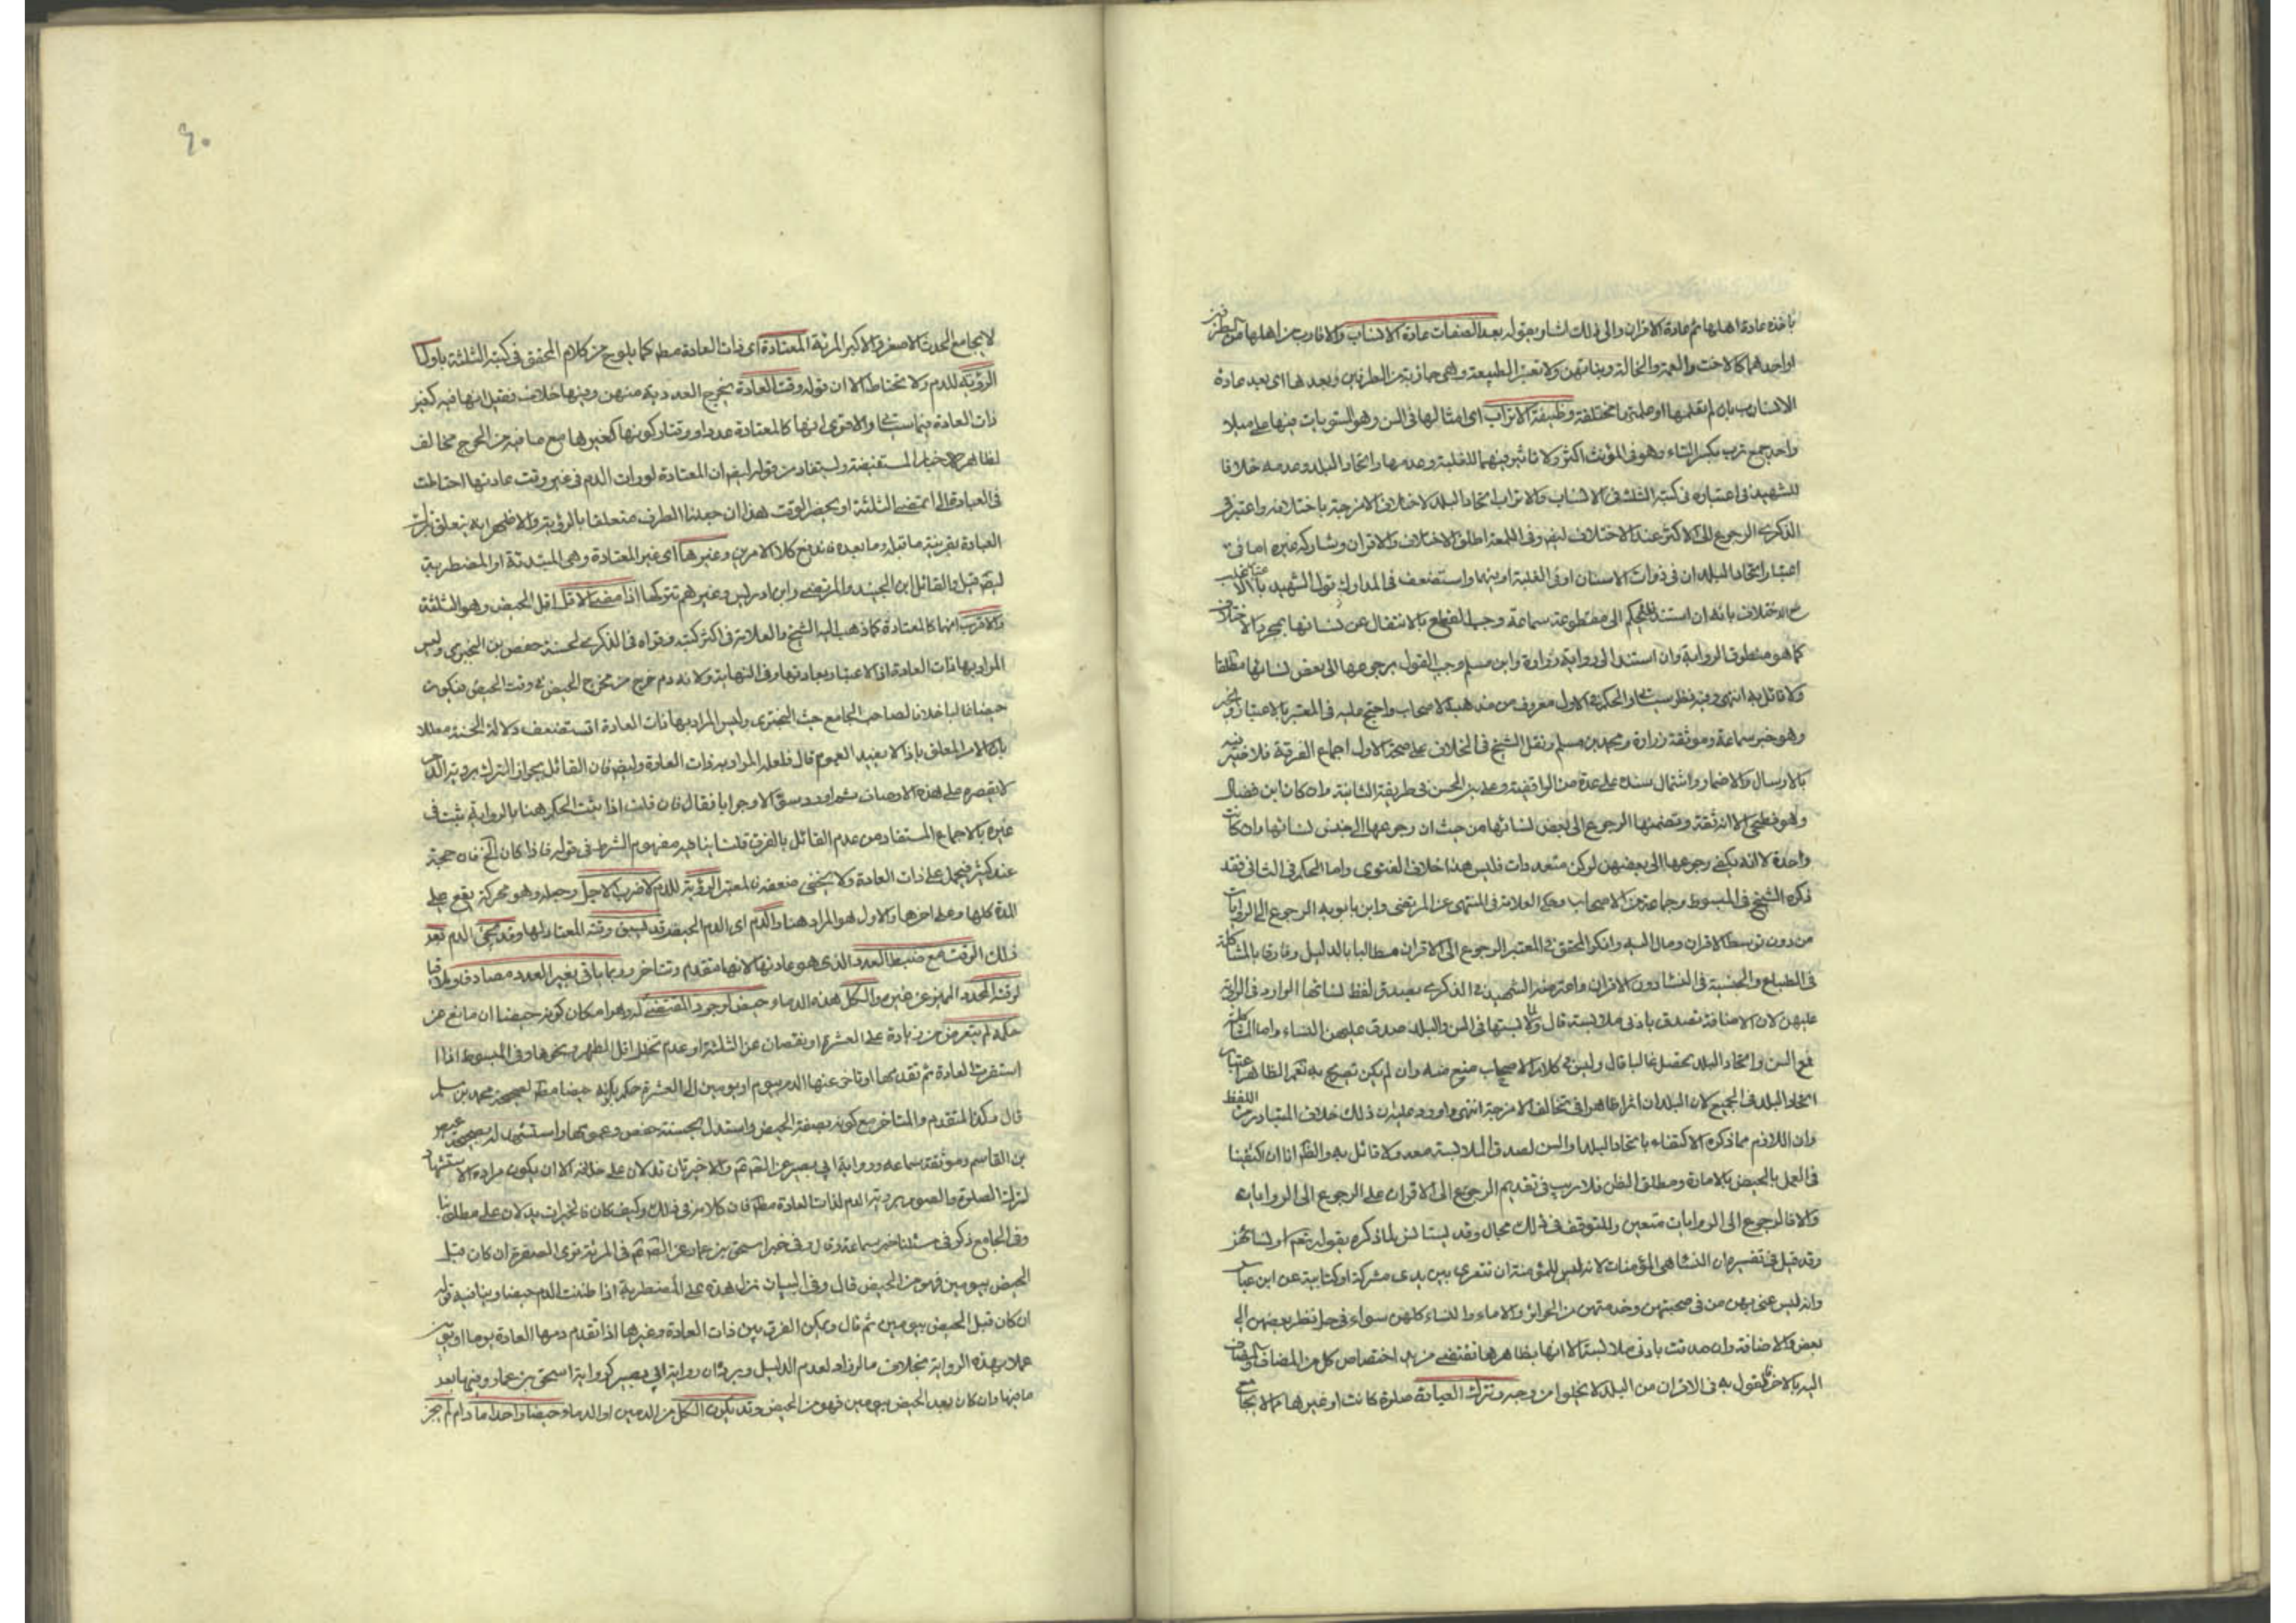 باخذه عادة اهلها ثم عادة الاقران والى ذلك اشار بقوله بعد الصفات عادة الانساب والاقارب من اهلها من الطرفين
او احدهما كالاخت والعمة والخالة وبناتهن ولا تعتبر الطبيعة وهى جاذبة من الطرفين وبعدها اى بعد عادة
الانساب بان لم تعلمها او علمتها مختلفة وظيفة الاتراب اى امثالها فى السن وهو المستويات فيها على ميلاد
واحد جمع ترب بكسر التاء وهو فى المؤنث اكثر ولا تاثير فيهما للغلبة وعدمها واتحاد البلد وعدمه خلافا
للشهيد فى اعتباره فى كتبه الثلثة فى الانساب والاتراب اتحاد البلد لاختلاف الامزجة باختلافه واعتبر فى
الذكرى الرجوع الى الاكثر عند الاختلاف ايضا وفى اللمعة اطلق الاختلاف والاقران وشاركه غيره اما فى
اعتبار اتحاد البلدان فى ذوات الاسنان او فى الغلبة او فيهما واستضعف فى المدارك قول الشهيد بالاغلب
مع الاختلاف بانه ان استند الحكم الى مقطوعة سماعة وجب القطع بالانتقال عن نسائها بمجرد الاختلاف
كما هو منطوق الرواية وان استند الى رواية زرارة وابن مسلم وجب القول برجوعها الى بعض نسائها مطلقا
ولا قائل به انتهى وفيه نظر والحكم فى الاول معروف من مذهب الاصحاب واحتج عليه فى المعتبر بالاعتبار والخبر
وهو خبر سماعة وموثقة زرارة ومحمد بن مسلم ونقل الشيخ فى الخلاف على صحة الاول اجماع الفرقة فلا قدح فيه
بالارسال والاضمار واشتمال سنده على عدة من الواقفية وعلى بن الحسن فى طريقة الثانية وان كان ابن فضال
وهو فطحى الا انه ثقة وتضمنها الرجوع الى بعض نسائها من حيث ان رجوعها الى جنس نسائها وان كانت
واحدة لا انه يكفى رجوعها الى بعضهن لو كن متعددات فليس هذا خلاف الفتوى واما الحكم فى الثانى فقد
ذكره الشيخ فى المبسوط وجماعة من الاصحاب وحكى العلامة فى المنتهى عن المرتضى وابن بابويه الرجوع الى الروايات
من دون توسط الاقران ومال اليه وانكر المحقق فى المعتبر الرجوع الى الاقران مطالبا بالدليل وفارقا بالمشاكلة
فى الطباع والجنسية فى النسا دون الاقران واعترضه الشهيد فى الذكرى بصدق لفظ نسائها الوارد فى الرواية
عليهن لان الاضافة تصدق بادنى ملابسة قال ولما لابستها فى السن والبلد صدق عليهن النساء واما المشاكلة
فمع السن واتحاد البلد تحصل غالبا قال وليس فى كلام الاصحاب منع منه وان لم يكن تصريح به نعم الظاهر اعتبار
اتحاد البلد فى الجميع لان للبلدان اثرا ظاهرا فى تخالف الامزجة انتهى واورد عليه ان ذلك خلاف المتبادر من اللفظ
وان اللازم مما ذكره الاكتفاء باتحاد البلد او السن لصدق الملابسة معه ولا قائل به والظ انا ان اكتفينا
فى العمل بالحيض بالامارة ومطلق الظن فلا ريب فى تقديم الرجوع الى الاقران على الرجوع الى الروايات
والا فالرجوع الى الروايات متعين وللتوقف فى ذلك مجال وقد يستانس لما ذكره بقوله تعم او نسائهن
وقد قيل فى تفسيره ان النسا هى المؤمنات لانه ليس للمؤمنة ان تتعرى بين يدى مشركة او كتابية عن ابن عباس
وانه ليس عنى بهن من فى صحبتهن وخدمتهن من الحرائر والاماء والنساء كلهن سواء فى حل نظر بعضهن الى
بعض والاضافة وان صدقت بادنى ملابسة الا انها بظاهرها تقتضى مزيد اختصاص كل من المضاف والمضاف
اليه بالاخر فالقول به فى الاقران من البلد لا يخلوا من وجه وتترك العبادة صلوة كانت او غيرها مما لا يجامع
٦٠
لا يجامع الحدث الاصغر والاكبر المرئية المعتادة اى ذات العادة مط كما يلوح من كلام المحقق فى كتبه الثلثة باول
الرؤية للدم ولا تحتاط الا ان قوله وقت العادة يخرج العددية منهن وفيها خلاف فقيل انها فيه كغير
ذات العادة فيما سيجئ والاقوى انها كالمعتادة عددا ووقتا وكونها كغيرها مع ما فيه من الحرج مخالف
لظاهر الاخبار المستفيضة ويستفاد من قوله ايضا ان المعتادة لو رات الدم فى غير وقت عادتها احتاطت
فى العبادة الى ان تمضى الثلثة او يحضر الوقت هذا ان جعلنا الظرف متعلقا بالرؤية والاظهر انه يتعلق بترك
العبادة بقرينة ما قبله وما بعده فاندفع كلا الامرين وغيرها اى غير المعتادة وهى المبتدئة او المضطربة
ايضا قيل والقائل ابن الجنيد والمرتضى وابن ادريس وغيرهم تتركها اذا مضى الاقل اقل الحيض وهو الثلثة
والاقرب انها كالمعتادة كما ذهب اليه الشيخ والعلامة فى اكثر كتبه وقواه فى الذكرى لحسنة حفص بن البخترى وليس
المراد بها ذات العادة اذ الاعتبار بعادتها وفى النهاية ولانه دم خرج من مخرج الحيض فى وقت الحيض فيكون
حيضا غالبا خلافا لصاحب الجامع حيث البخترى وليس المراد بها ذات العادة استضعف دلالة الحسنة معللا
بان الامر المعلق باذا لا يفيد العموم قال فلعل المراد به ذات العادة وايضا فان القائل بجواز الترك برؤية الدم
لا يقصره على هذه الاوصاف ثم اورد سؤالا وجوابا فقال فان قلت اذا ثبت الحكم هنا بالرواية ثبت فى
غيره بالاجماع المستفاد من عدم القائل بالفرق قلنا ينافيه مفهوم الشرط فى قوله فاذا كان الخ فانه حجة
عند كثير فيحمل على ذات العادة ولا يخفى ضعفه المعتبر الرؤية للدم لا ضرب الاجل وجعله وهو محركة يقع على
المدة كلها وعلى اخرها والاول هو المراد هنا والدم اى الدم الحيض قد يسبق وقته المعتاد لها وقد يجئ الدم بعد
ذلك الوقت مع ضبط العدد الذى هو عادتها لانها تتقدم وتتاخر وربما ياتى بغير العدد مصادفا وملاقيا
لوقته المحدود المميز عن غيره والكل هذه الدماء حيض لوجود المقتضى له وهو امكان كونه حيضا ان مانع عن
حكمه لم يتعرض من زيادة على العشرة او نقصان عن الثلثة او عدم تخلل اقل الطهر ونحوها وفى المبسوط اذا
استقرت العادة ثم تقدمها او تاخر عنها الدم بيوم او يومين الى العشرة حكم بكونه حيضا مط لصحيحة محمد بن مسلم
قال وكذا المتقدم والمتاخر مع كونه بصفة الحيض واستدل بحسنة حفص وعمومها واستشهد له بصحيحة عيص
بن القاسم وموثقة سماعه ورواية ابى بصير عن الصم والاخيرتان تدلان على خلافه الا ان يكون مراده الاستشهاد
لترك الصلوة والصوم برؤية الدم لذات العادة مط فان كلامه فى ذلك وكيف كان فالخبران يدلان على مطلوبنا
وفى الجامع ذكر فى مسئلتنا خبر سماعة وقال وفى خبر اسحق بن عمار عن الصم فى المرئة ترى الصفرة ان كان قبل
الحيض بيومين فهو من الحيض قال وفى البيان نزل هذه على المضطربة اذا ظننت الدم حيضا وينافيه قوله
ان كان قبل الحيض بيومين ثم قال ويمكن الفرق بين ذات العادة وغيرها اذا تقدم دمها العادة يوما او يومين
عملا بهذه الرواية بخلاف ما لو زاد لعدم الدليل ويرده ان رواية ابى بصير كرواية اسحق بن عمار وفيها بعد
ما فيها وان كان بعد الحيض بيومين فهو من الحيض وقد يكون الكل من الدمين او الدماء حيضا واحدا ما دام لم يجز